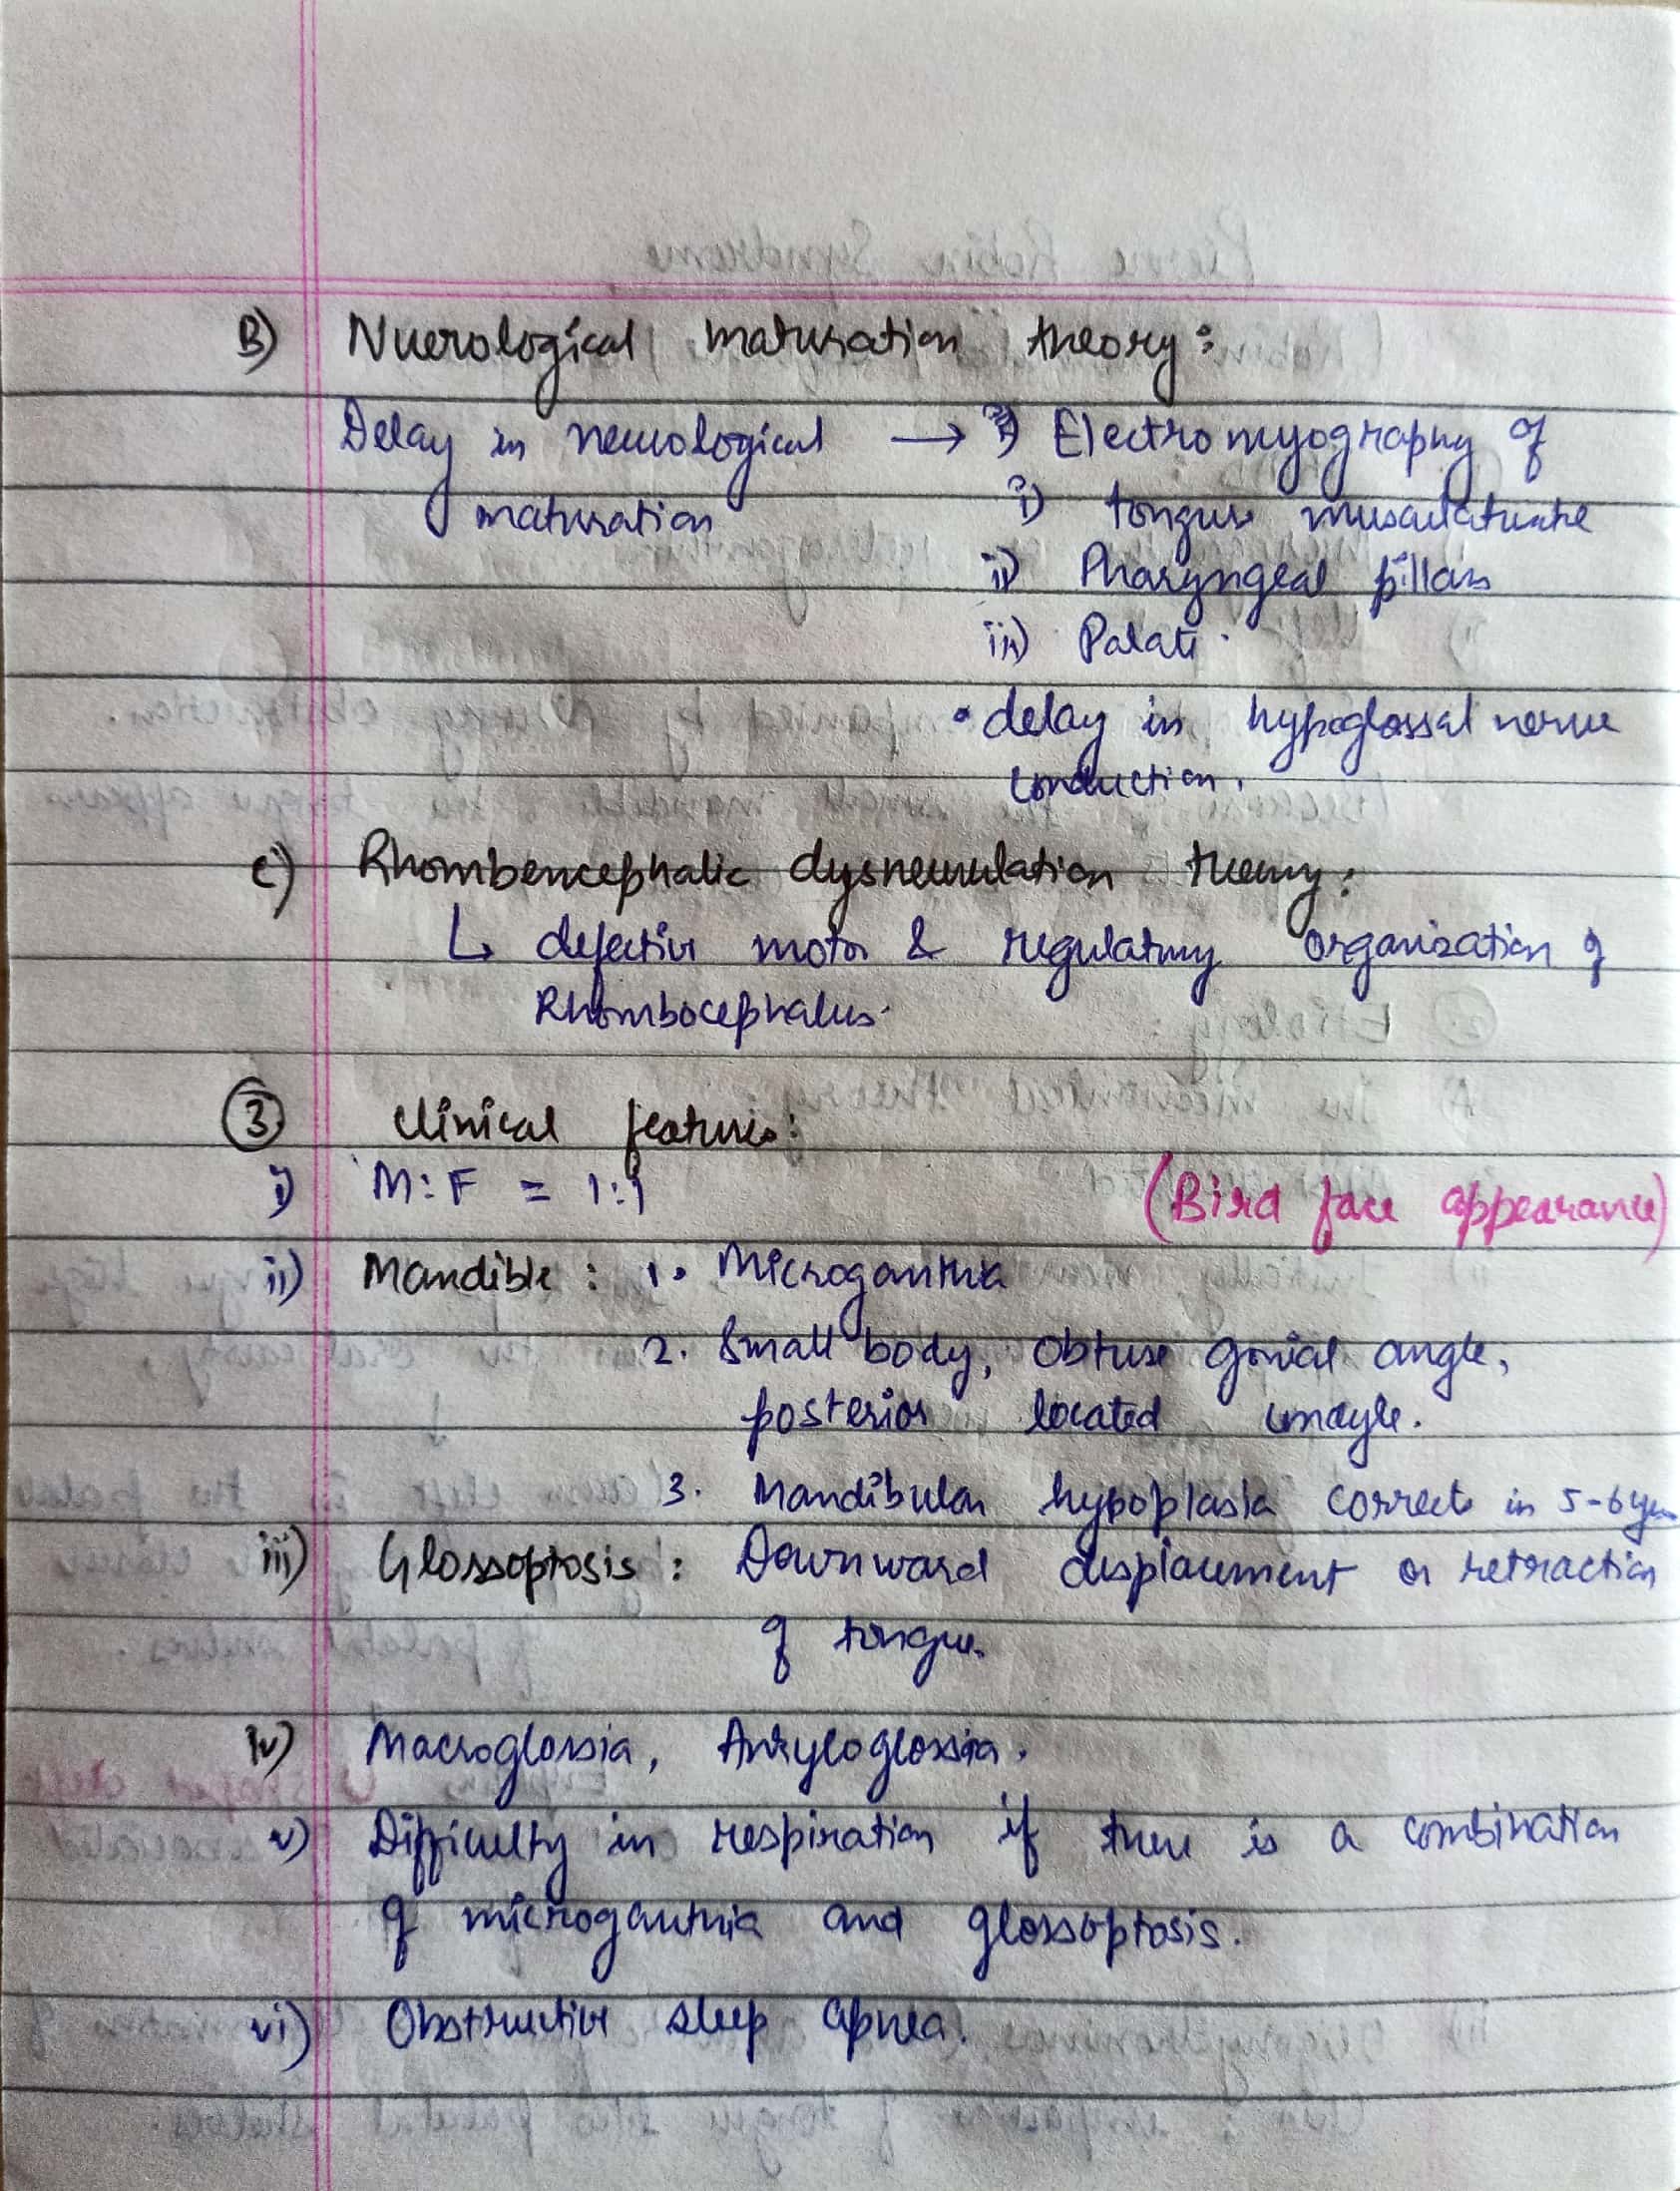 B) Nuerological maturation theory:
Delay in neurological → Electromyography of
maturation i) tongue musculature
ii) Pharyngeal pillars
iii) Palate.
• delay in hypoglossal nerve
conduction.
C) Rhombencephalic dysneurulation theory:
↳ defective motor & regulatory organization of
Rhombocephalus.
③ Clinical features:
i) M:F = 1:1 (Bird face appearance)
ii) Mandible : 1. Microganthia
2. Small body, obtuse gonial angle,
posterior located condyle.
3. Mandibular hypoplasia corrects in 5-6 years
iii) Glossoptosis : Downward displacement or retraction
of tongue.
iv) Macroglossia, Ankyloglossia.
v) Difficulty in respiration if there is a combination
of microganthia and glossoptosis.
vi) Obstructive sleep apnea.